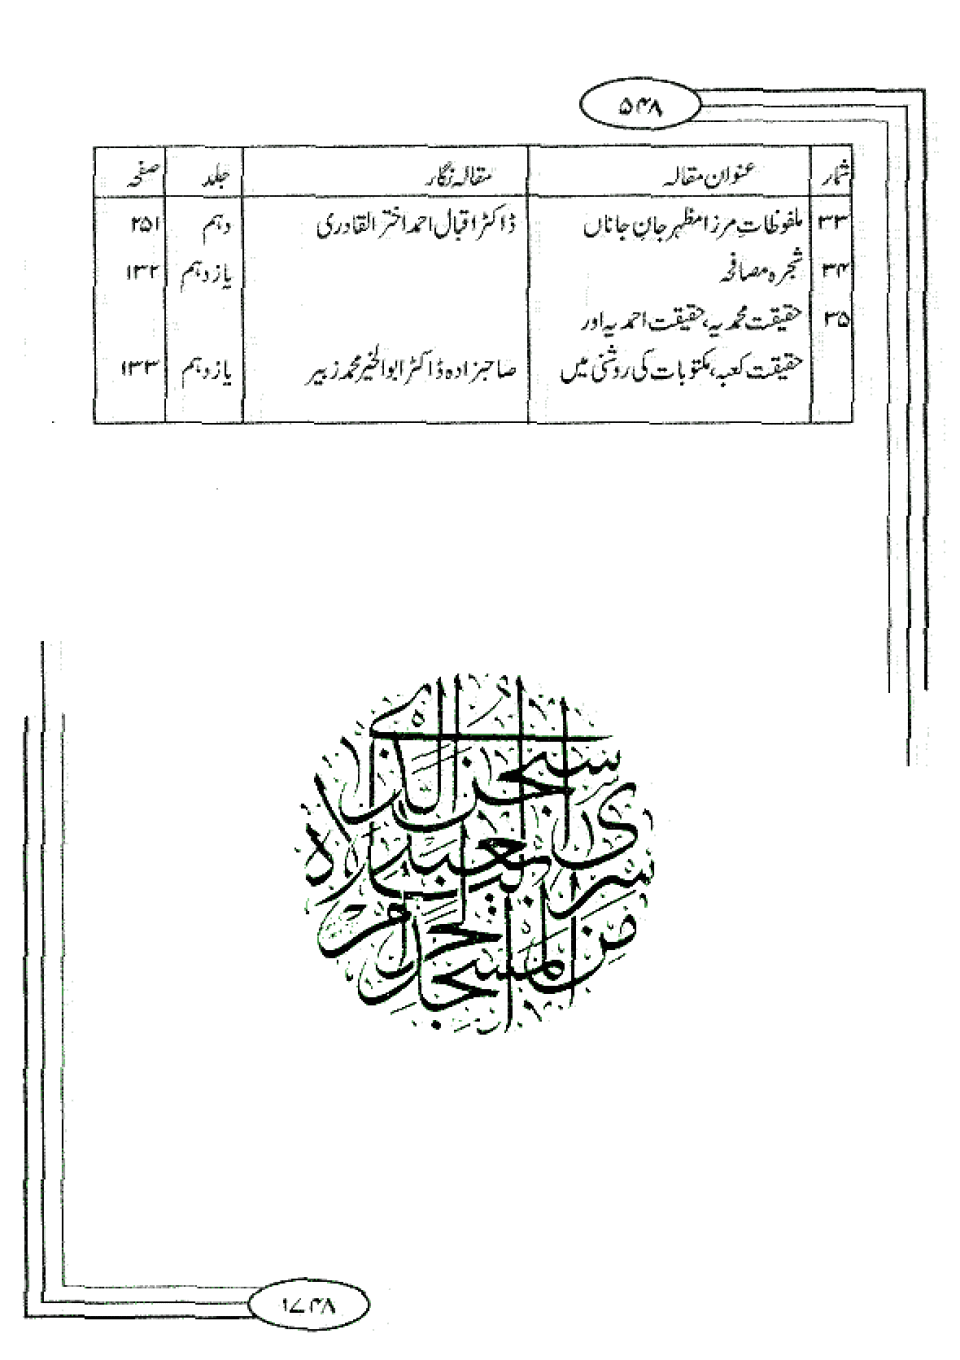 ۵۴۸
شمار عنوان مقالہ مقالہ نگار جلد صفحہ
۳۳ ملفوظاتِ مرزا مظہر جانِ جاناں ڈاکٹر اقبال احمد اختر القادری دہم ۲۵۱
۳۴ شجرہ مصافحہ یازدہم ۱۳۲
۳۵ حقیقت محمدیہ، حقیقت احمدیہ اور
حقیقت کعبہ، مکتوبات کی روشنی میں صاحبزادہ ڈاکٹر ابوالخیر محمد زبیر یازدہم ۱۳۳
سبحن الذی
اسری بعبده
لیلا
من المسجد الحرام
۱۷۴۸